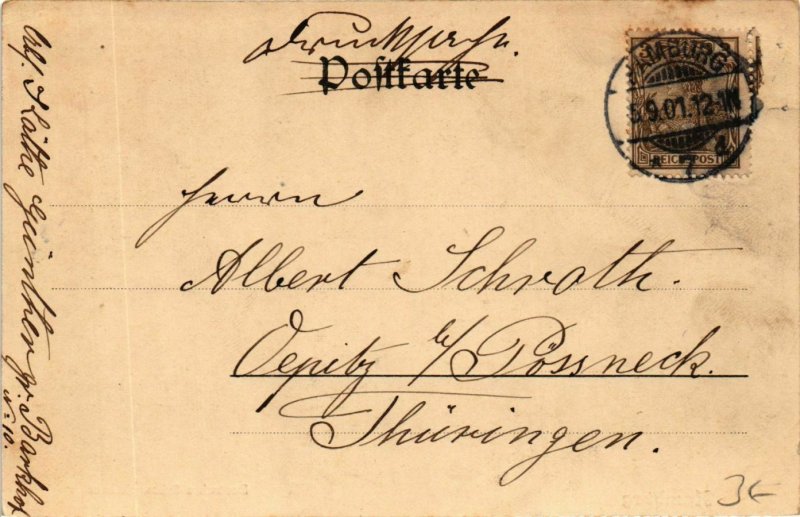 Drucksache.
Postkarte
HAMBURG
5.9.01.12-1N
* 7 d
REICHSPOST
Herrn
Albert Schroth.
Oepitz b/ Pössneck.
Thüringen.
Abs. Käthe Günther gr. Barkhof
No 10.
3€